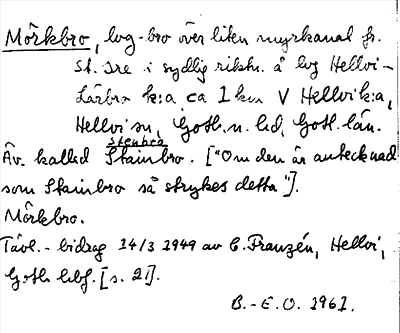 Mörkbro, lvg-bro över liten myrkanal fr.
St. Ire i sydlig riktn. å lvg Hellvi-
Lärbro k:a, ca 1 km V Hellvi k:a,
Hellvi sn, Gotl. n. hd, Gotl. län.
stenbro
Äv. kallad Stainbro. ["Om den är antecknad
som Stainbro så strykes detta"].
Mörkbro.
Tävl.-bidrag 14/3 1949 av C. Franzén, Hellvi,
Gotl. hbf. [s. 2].
B.-E.O. 1961.